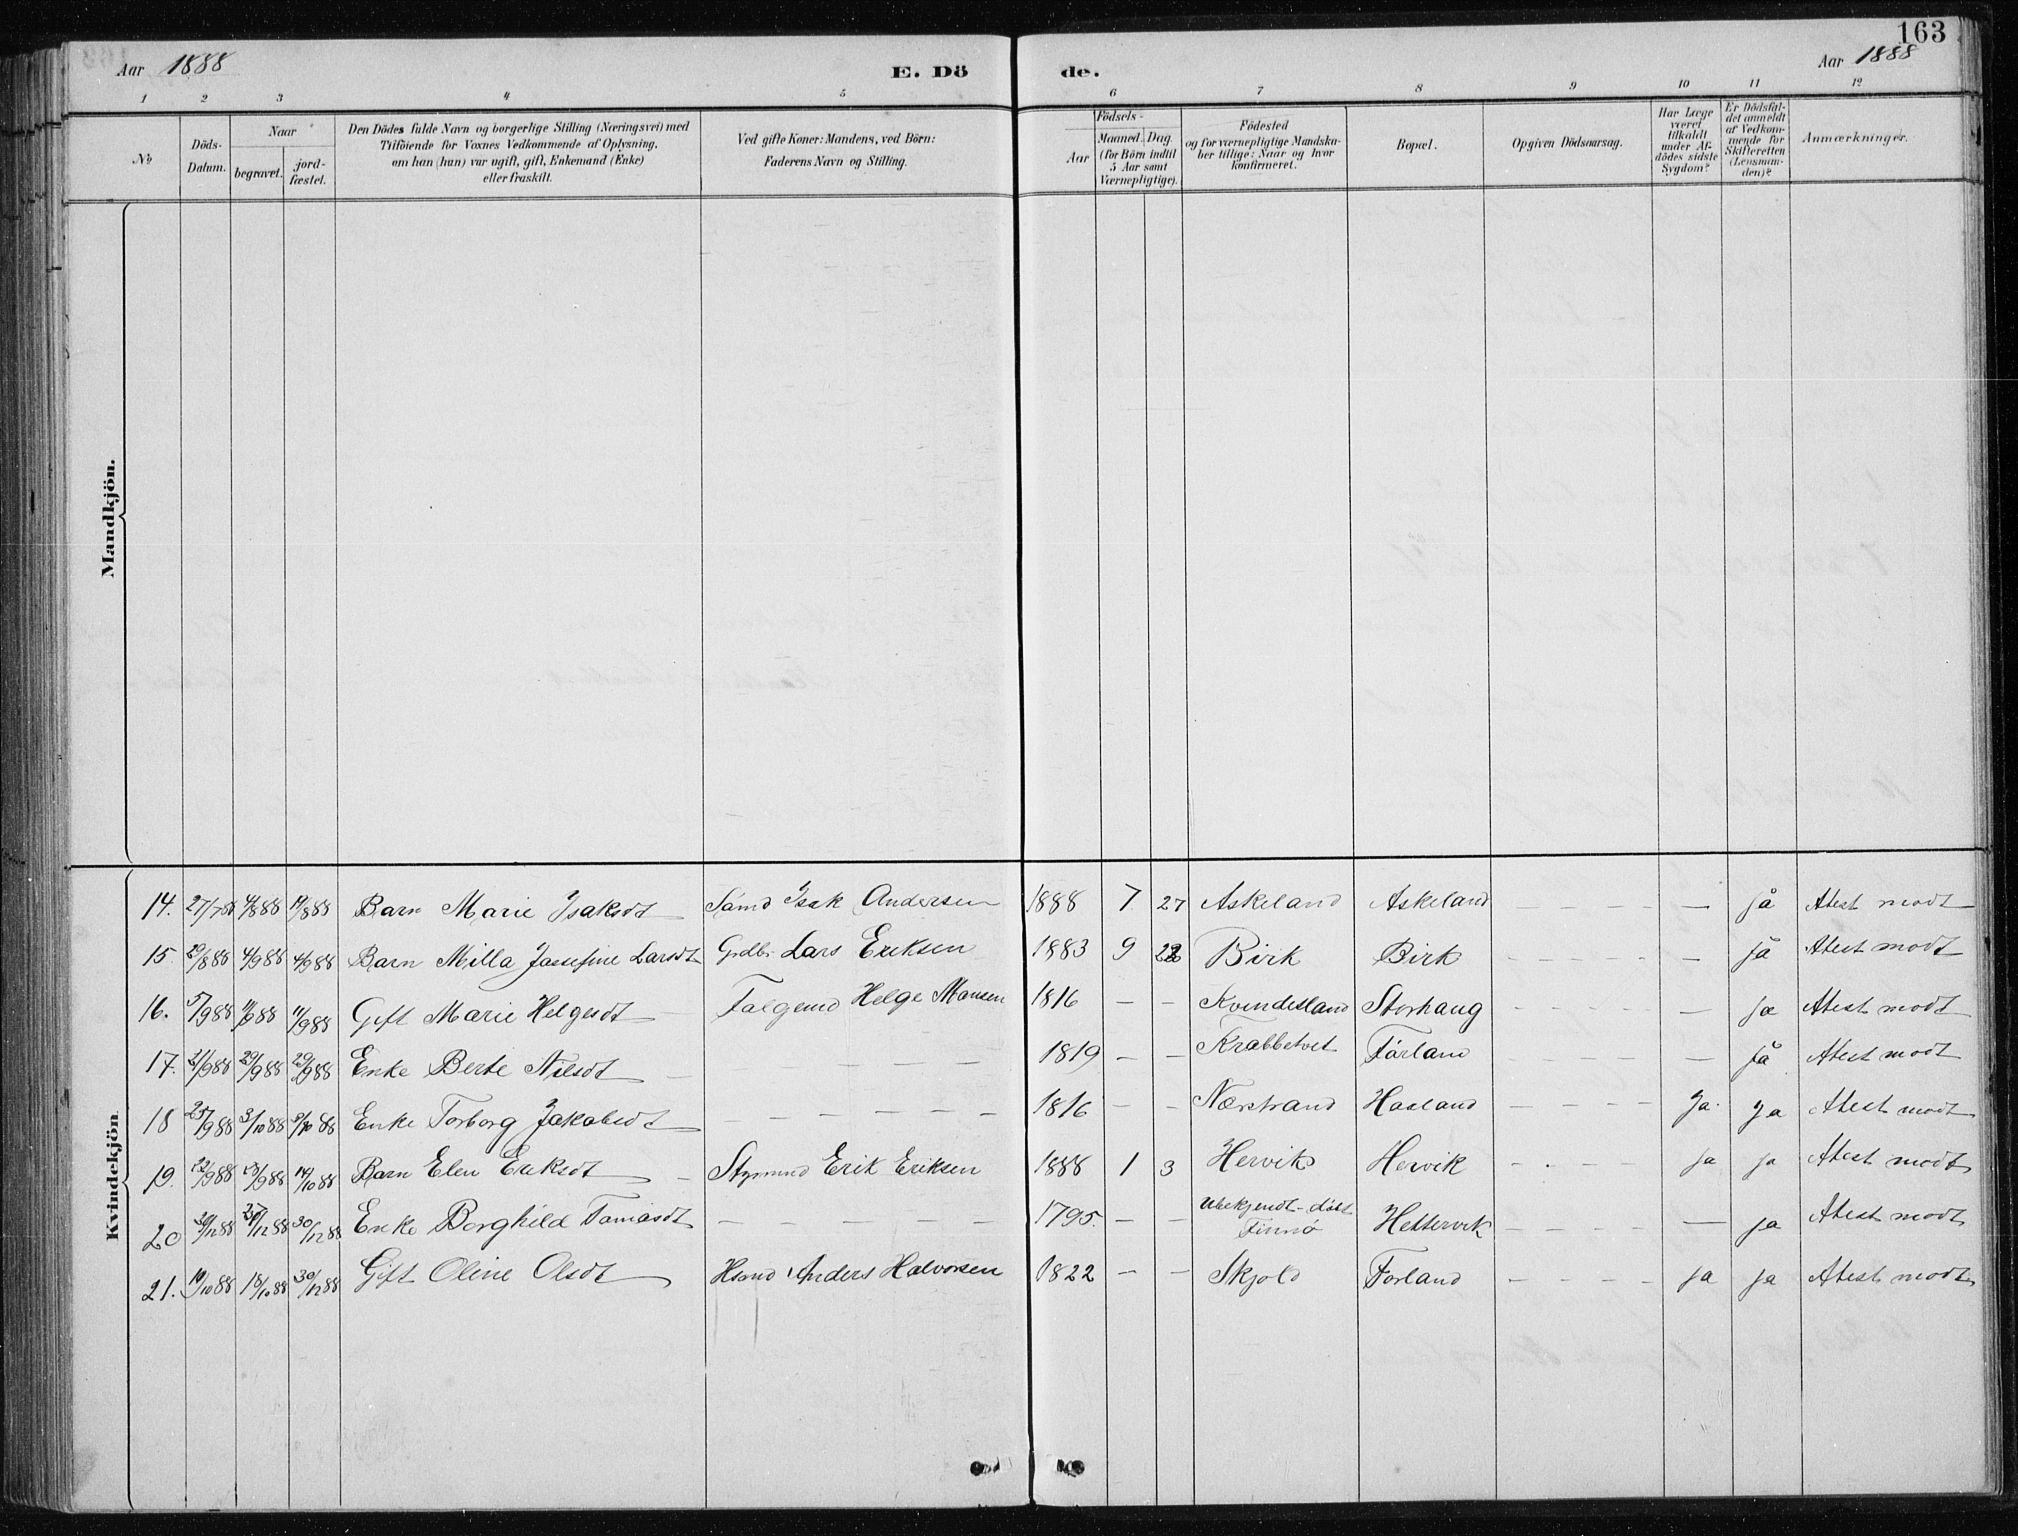 163
Aar 1888
E. Dö de.
Aar 1888
1 2 3 4 5 6 7 8 9 10 11 12
No
Döds-Datum.
Naar
begravet.
jord-fæstet.
Den Dödes fulde Navn og borgerlige Stilling (Næringsvei) med
Tilföiende for Voxnes Vedkommende af Oplysning,
om han (hun) var ugift, gift, Enkemand (Enke)
eller fraskilt.
Ved gifte Koner: Mandens, ved Börn:
Faderens Navn og Stilling.
Födsels-
Aar
Maaned. Dag.
(for Börn indtil
5 Aar samt
Værnepligtige).
Födested
og for værnepligtige Mandska-
ber tillige: Naar og hvor
konfirmeret.
Bopæl.
Opgiven Dödsaarsag.
Har Læge
været
tilkaldt
under Af-
dödes sidste
Sygdom?
Er Dödsfal-
det anmeldt
af Vedkom-
mende for
Skifteretten
(Lensman-
den)?
Anmærkninger.
Mandkjön.
Kvindekjön
14. 27/7 88 4/8 88 19/8 88 Barn Marie Isaksdt Isak Andersen 1888 7 27 Askeland Askeland - - - - — ja Atest modt
15. 29/8 88 4/9 88 4/9 88 Barn Milla Josefine Larsdt Grdbr. Lars Eriksen 1883 9 Birk Birk - - - - — ja Atest modt
16. 5/9 88 11/9 88 11/9 88 Gift Marie Helgesdt Helge Monsen 1816 — — Kvindesland Storhaug - - - - — ja Atest modt
17. 21/9 88 29/9 88 29/9 88 Enke Berte Nilsdt — — — — 1819 — — Krabbetvet Førland - - - - — ja Atest modt
18 25/9 88 3/10 88 3/10 88 Enke Torborg Jakobsdt — — — — 1816 — — Nærstrand Hasland - - - - Ja. ja Atest modt
19. 22/9 88 /9 88 14/10 88 Barn Elen Eriksdt Erik Eriksen 1888 1 3 Hervik Hervik - - - - ja ja Atest modt
20 /12 88 /12 88 30/12 88 Enke Borghild Tomasdt — — — — 1795. — — Ubekjendt - døbt Finnø Hettervik - - - - — ja Atest modt
21. 10/10 88 18/10 88 30/12 88 Gift Oline Olsdt Hsmd Anders Halvorsen 1822 — — Skjold Førland - - - - ja ja Atest modt